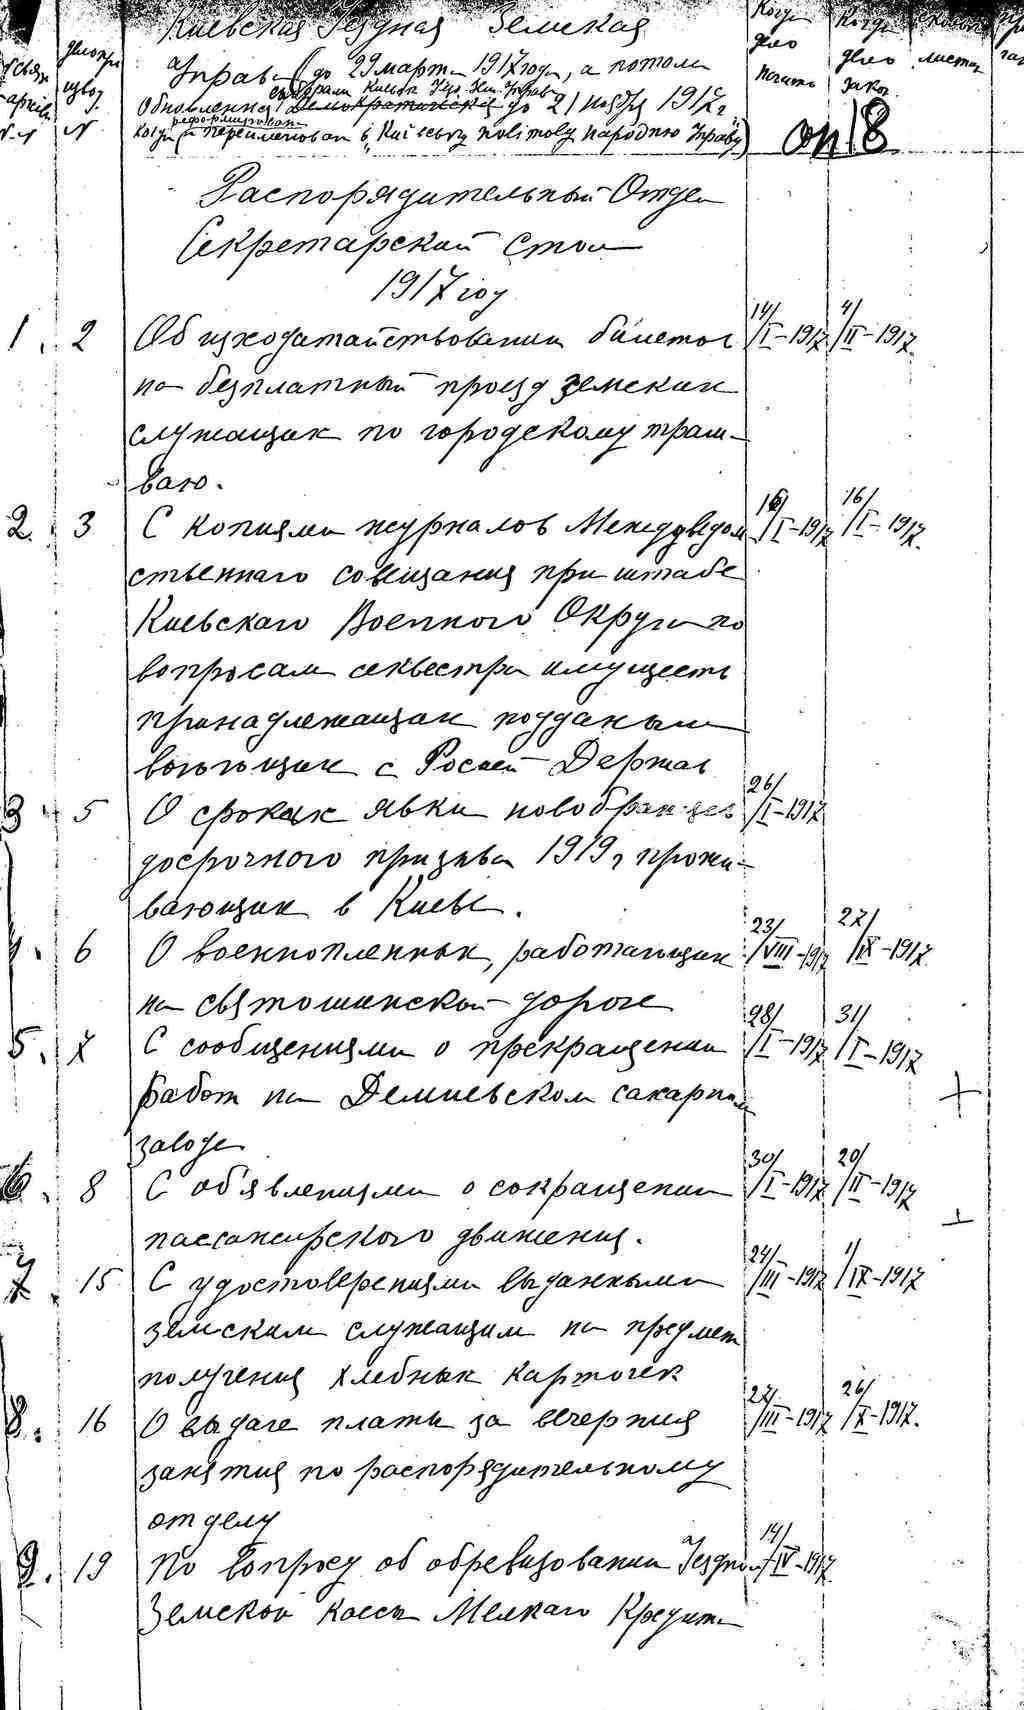 Киевская Уездная Земская
Управа (до 29 марта 1917 года, а потом
Обновленная
Демократическая до 21 ноября 1917 г
реформирован
когда переименован в "Київську повітову народню Управу")
Когда дело начато
Когда дело закон.
листах
оп 18
Распорядительный Отдел
Секретарский Стол
1917 год
1. 2 Об исходатайствовании билетов 14/I-1917 4/II-1917.
на безплатный проезд земских
служащих по городскому трам-
ваю.
2. 3 С копиями журналов Междуведом 16/I-1917 16/I-1917.
ственнаго совещания при штабе
Киевскаго Военного Округа по
вопросам секвестра имуществ
принадлежащих подданым
воюющих с Росией Держав
3 5 О сроках явки новобранцев 26/I-1917
досрочного призыва 1919 г, прожи-
вающих в Киеве.
4. 6 О военнопленных, работающих 23/VIII-1917 27/IX-1917.
на святошинской дороге
5. 7 С сообщениями о прекращении 28/I-1917 31/I-1917
работ на Демиевском сахарном
заводе
6. 8 С об'явлениями о сокращении 30/I-1917 20/II-1917
пассажирского движения.
7. 15 С удостоверениями выданными 24/III-1917 1/IX-1917
земским служащим на предмет
получения хлебных карточек
8. 16 О выдаче платы за вечерния 27/III-1917 26/X-1917.
занятия по распорядительному
отделу
9. 19 По вопросу об обревизовании Уездной 14/IV-1917
Земской кассы Мелкаго Кредита